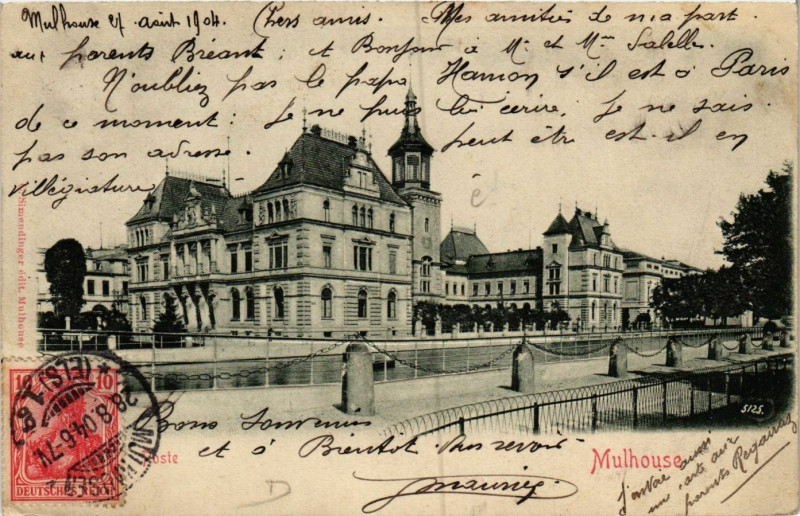 Mulhouse 27 août 1904. Chers amis. Mes amitiés de ma part.
aux parents Bréant ; et Bonjour à Mr. et Mme Salelles.
N'oubliez pas le papa Hamon s'il est à Paris
de ce moment : je ne puis lui écrire, je ne sais
pas son adresse. peut être est-il en
villégiature
Simendinger édit. Mulhouse
10 10
DEUTSCHES REICH
(ELS)
28.8.04.6-7V
5125.
Bons Souvenirs
Poste
et à Bientôt
revoir
Mulhouse
Maurice
J'envoie aussi
une carte aux
parents